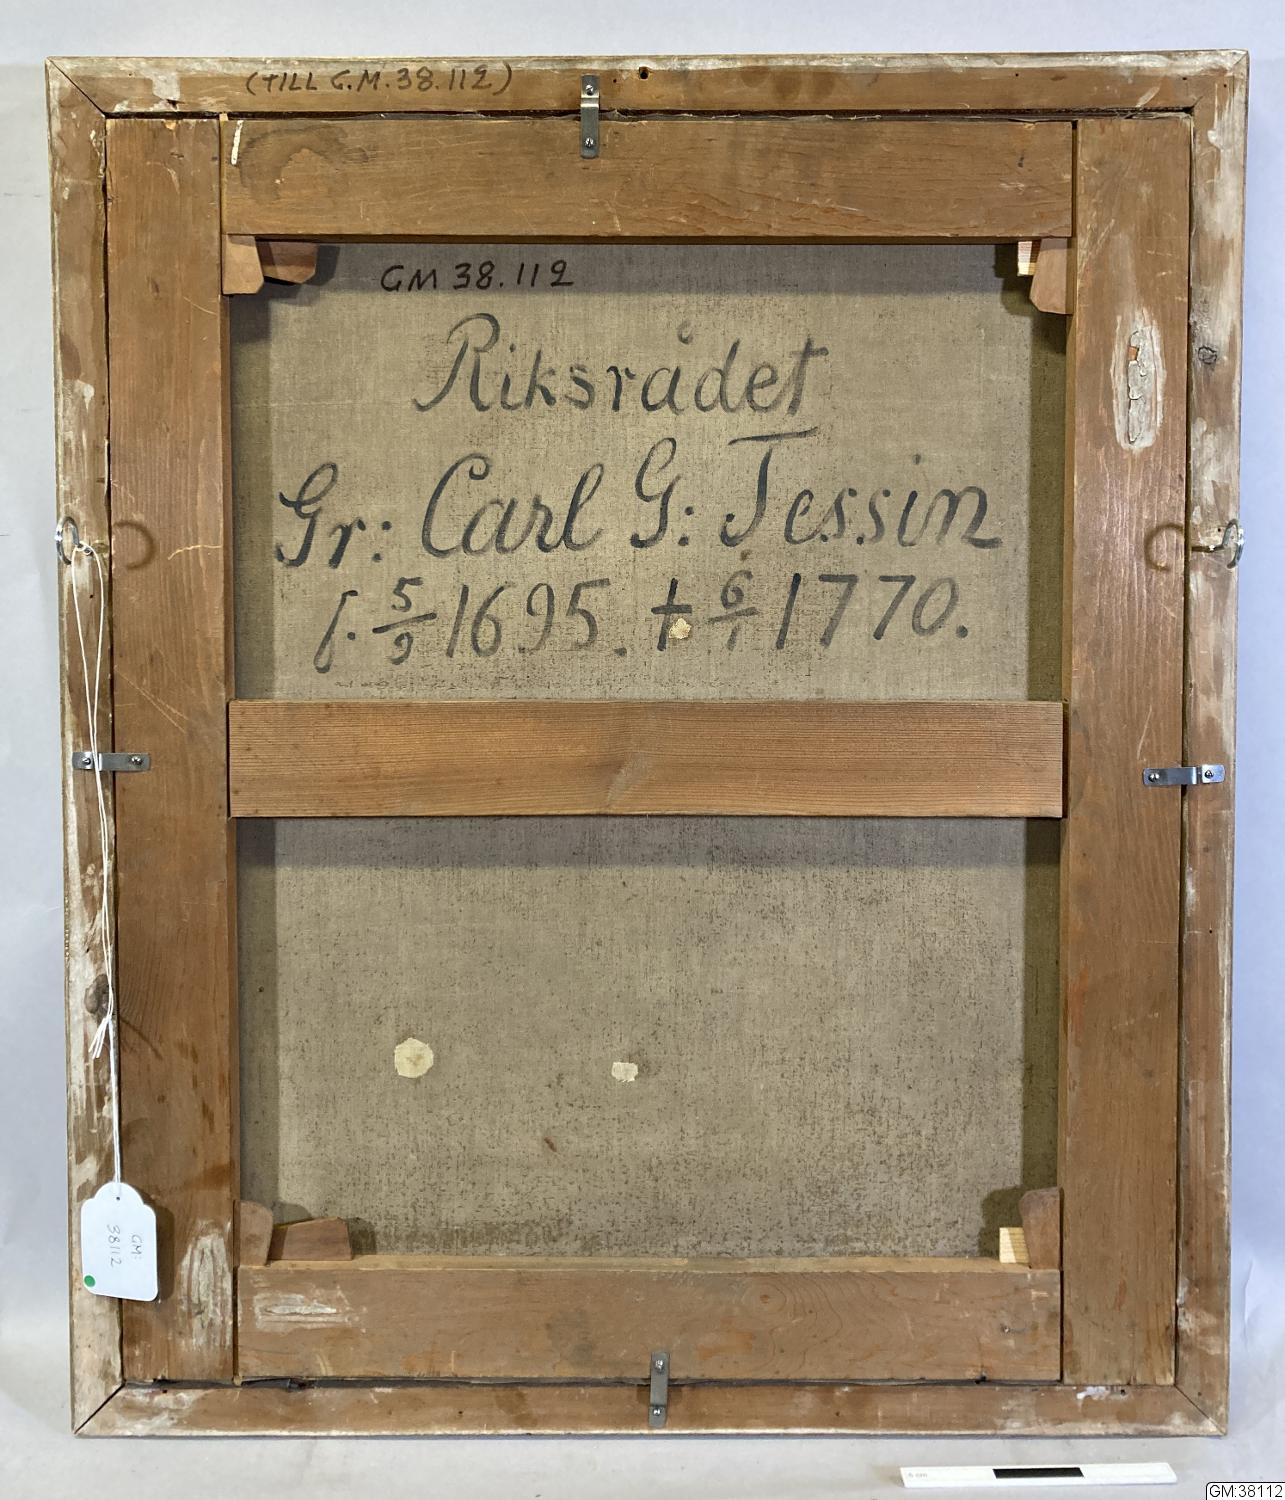 (TILL G.M. 38.112)
GM 38.112
Riksrådet
Gr: Carl G: Tessin
f. 5/9 1695. † 6/1 1770.
GM:
38112
5 cm
GM:38112